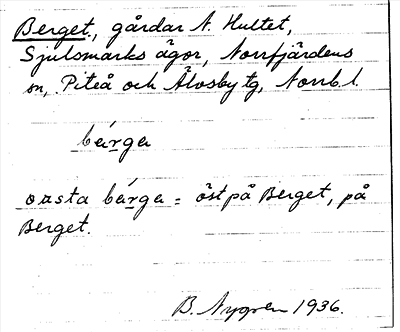 Berget, gårdar N. Hultet,
Sjulsmarks ägor, Norrfjärdens
sn, Piteå och Älvsby tg, Norrb. l.
bárga
ossta bárga = öst på Berget, på
Berget.
B. Nygren 1936.